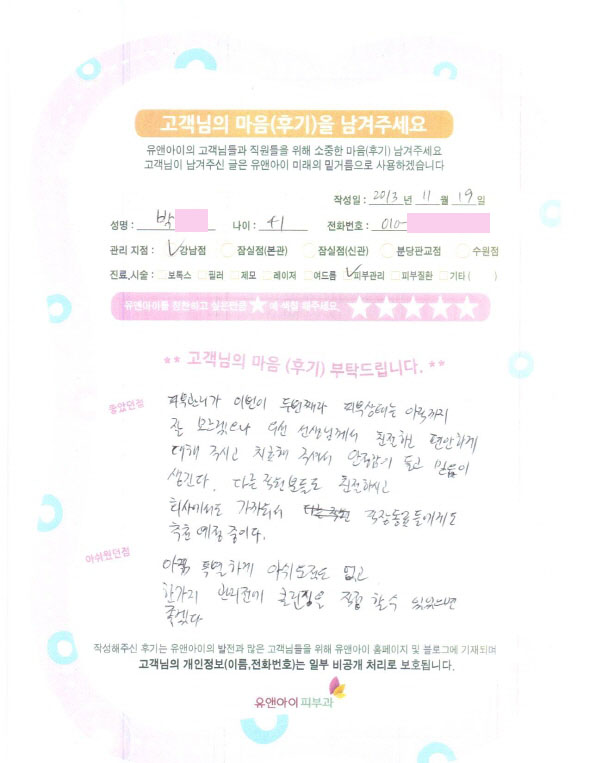 고객님의 마음(후기)을 남겨주세요
유앤아이의 고객님들과 직원들을 위해 소중한 마음(후기) 남겨주세요
고객님이 남겨주신 글은 유앤아이 미래의 밑거름으로 사용하겠습니다
작성일 : 2013 년 11 월 19 일
성명 : 박 나이 : 41 전화번호 : 010-
관리 지점 : ✓강남점 잠실점(본관) 잠실점(신관) 분당판교점 수원점
진료,시술 : 보톡스 필러 제모 레이저 여드름 ✓피부관리 피부질환 기타 ( )
유앤아이를 칭찬하고 싶은만큼 ★ 에 색칠 해주세요. ★★★★★
** 고객님의 마음 (후기) 부탁드립니다. **
좋았던점
피부관리가 이번이 두번째라 피부상태는 아직까지
잘 모르겠으나 선생님께서 친절하고 편안하게
대해 주시고 치료해 주셔서 안락감기 들고 믿음이
생긴다. 다른 직원분들도 친절하시고
회사에서도 가까워서 직장동료들에게도
추천 예정 중이다.
아쉬웠던점
아직 특별하게 아쉬운점은 없고
한가지 관리전에 클린징을 직접 할수 있었으면
좋겠다
작성해주신 후기는 유앤아이의 발전과 많은 고객님들을 위해 유앤아이 홈페이지 및 블로그에 기재되며
고객님의 개인정보(이름,전화번호)는 일부 비공개 처리로 보호됩니다.
유앤아이 피부과